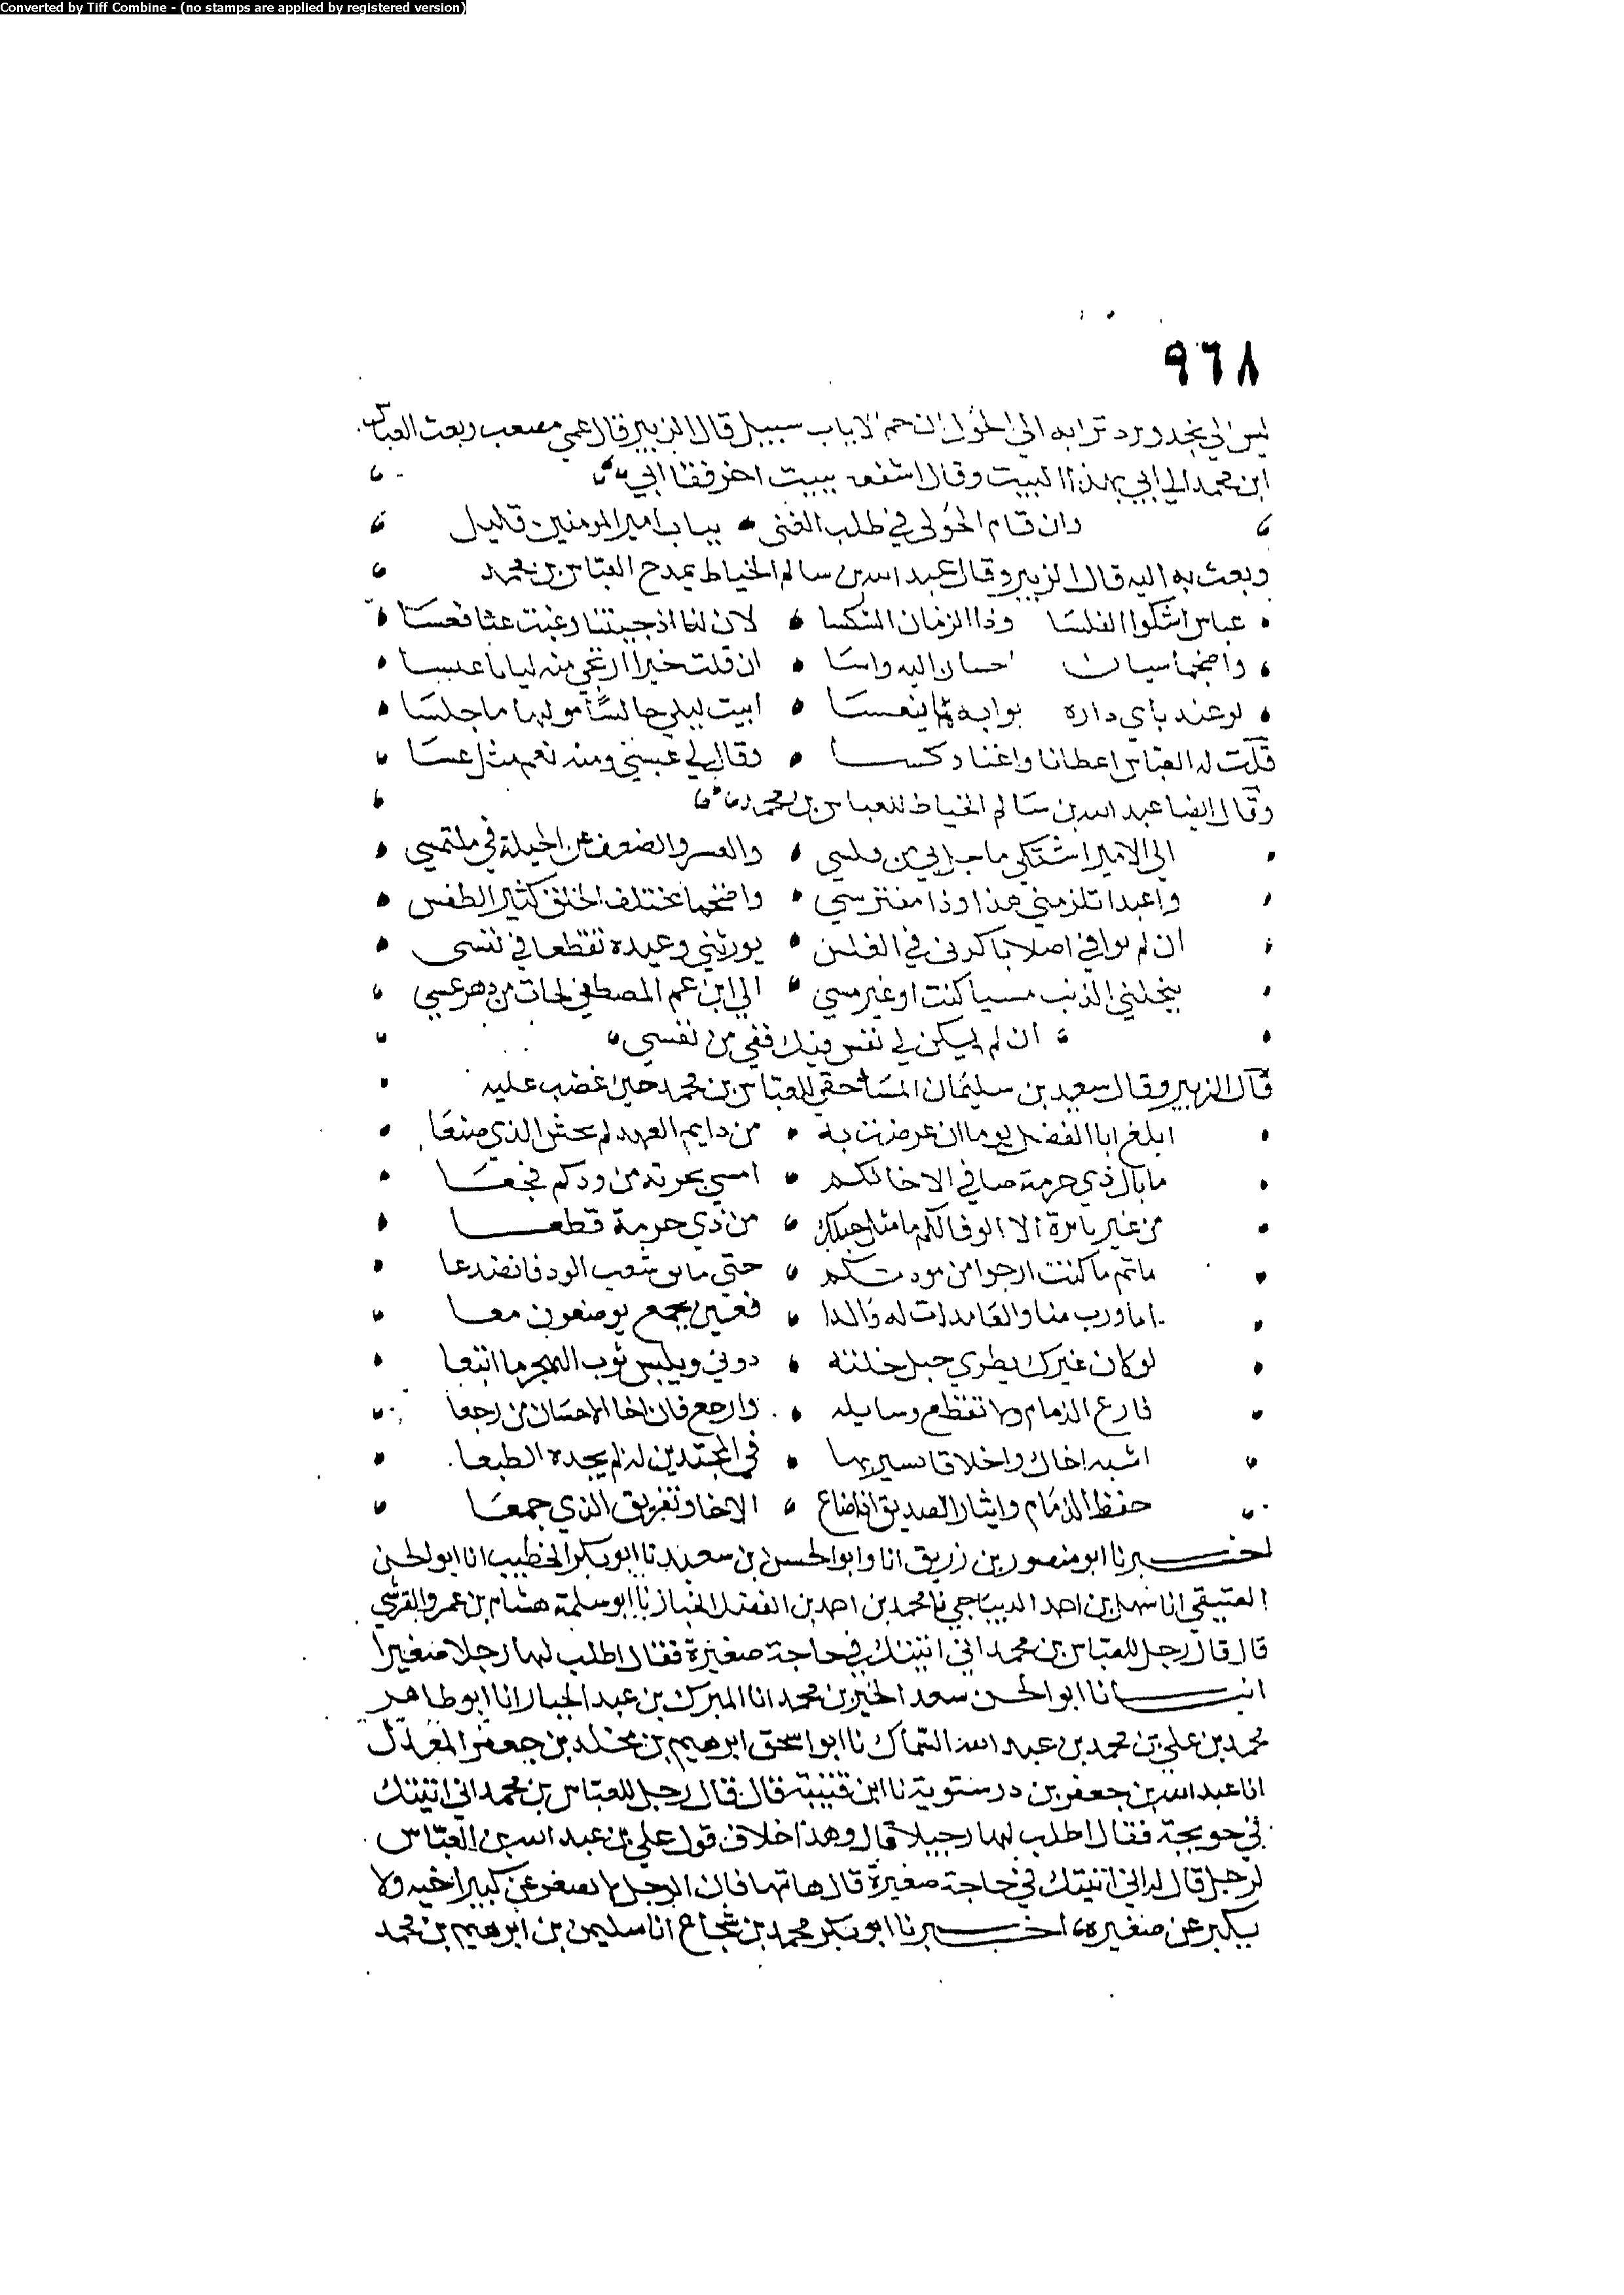 Converted by Tiff Combine - (no stamps are applied by registered version)
٩٦٨
ليس الى نجد وبرد ترابه الى الحول ان حم الاياب سبيل قال الزبير قال عمي مصعب وبعث العباس
ابن محمد الى ابي بهذا البيت وقال اشفعه ببيت اخر فقال ابي
وان مقام الحول في طلب الغنى بباب امير المومنين قليل
وبعث به اليه قال الزبير وقال عبد الله بن سالم الخياط يمدح العباس بن محمد
عباس اشكوا الفلسا وذا الزمان النكسا لان لنا اذ جيتنا وغبت عنا فعسا
احسان اليه واسا ان قلت خيرا ارتجي منه ليانا عبسا
لو عند باي داره بوابه ينعسا ابيت ليلي جالسا مولها ما جلسا
قلت له العباس اعطانا واغنا وكسا وقال لي عسى ومنه نعم مثل عسا
وقال ايضا عبد الله بن سالم الخياط للعباس بن محمد
الى الامير اشتكي ما جرابي من فلسي والعسر والضعف عن الحيلة في ملتمسي
واعبدا تلزمني هذا وذا مفترسي واضخما مختلف الخلق كثير الطفس
ان لم يوافي اصلا باكرني في الغلس يورثني وعيده تقطعا في نفسي
يخلني الذنب مسيا كنت او غير مسي الى ابن عم المصطفى لجات من دهر عسي
ان لم يكن لي نفس فيك ففي من نفسي
قال الزبير وقال سعيد بن سليمان المساحقي للعباس بن محمد حين غضب عليه
ابلغ ابا الفضل يوما ان عرضت به من دايم العهد لم يخش الذي صنعا
ما بال ذي حرمة صافي الاخا لكم امسى بحرته من ودكم فجعا
من غير نايرة الا الوفا لكم ما مثل حبلك من ذي حرمة قطعا
ما تم ما كنت ارجوا من مودتكم حتى شعب الود فانصدعا
اما ورب منا والعامدات له والدا فعين بجمع يوضعون معا
لو كان غيرك يطوي حبل خلته دوني ويلبس ثوب الهجر ما اتبعا
فارع الذمام ولا تقطع وسايله وارجع فان اخا الاحسان من رجعا
اشبه اخاك واخلاقا يسير بها في المجتدين له لم يجده الطبعا
حفظ الذمام وايثار الصديق اذا ضاع الاخا وتفريق الذي جمعا
اخبرنا ابو منصور بن زريق انا وابو الحسن بن سعيد نا ابو بكر الخطيب انا ابو الحسن
العتيقي انا سهل بن احمد الديباجي نا محمد بن احمد بن الفضل الخباز نا ابو سلمة هشام بن عمرو القرشي
قال قال رجل للعباس بن محمد اني اتيتك في حاجة صغيرة فقال اطلب لها رجلا صغيرا
انبانا ابو الحسن سعد الخير بن محمد انا المبرك بن عبد الجبار انا ابو طاهر
محمد بن علي بن محمد بن عبد الله السماك نا ابو اسحق ابرهيم بن مخلد بن جعفر المعدل
انا عبد الله بن جعفر بن درستوية نا ابن قتيبة قال قال رجل للعباس بن محمد اني اتيتك
في حويجة فقال اطلب لها رجيلا قال وهذا خلاف قول علي بن عبد الله بن العباس
لرجل قال له اني اتيتك في حاجة صغيرة قال هاتها فان الرجل لا يصغر عن كبير اخيه ولا
يكبر عن صغيره اخبرنا ابو بكر محمد بن شجاع انا سليمن بن ابرهيم بن محمد